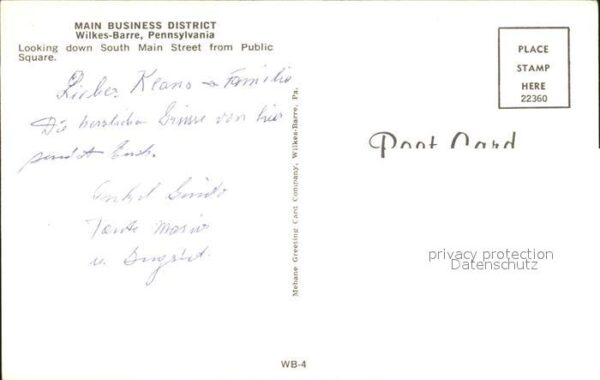 MAIN BUSINESS DISTRICT
Wilkes-Barre, Pennsylvania
Looking down South Main Street from Public
Square.
Lieber Klaus + Familie
Die herzlichen Grüsse von hier
sendet Euch.
Onkel
Tante Maria
u.
Mebane Greeting Card Company, Wilkes-Barre, Pa.
PLACE
STAMP
HERE
22360
Post Card
privacy protection
Datenschutz
WB-4